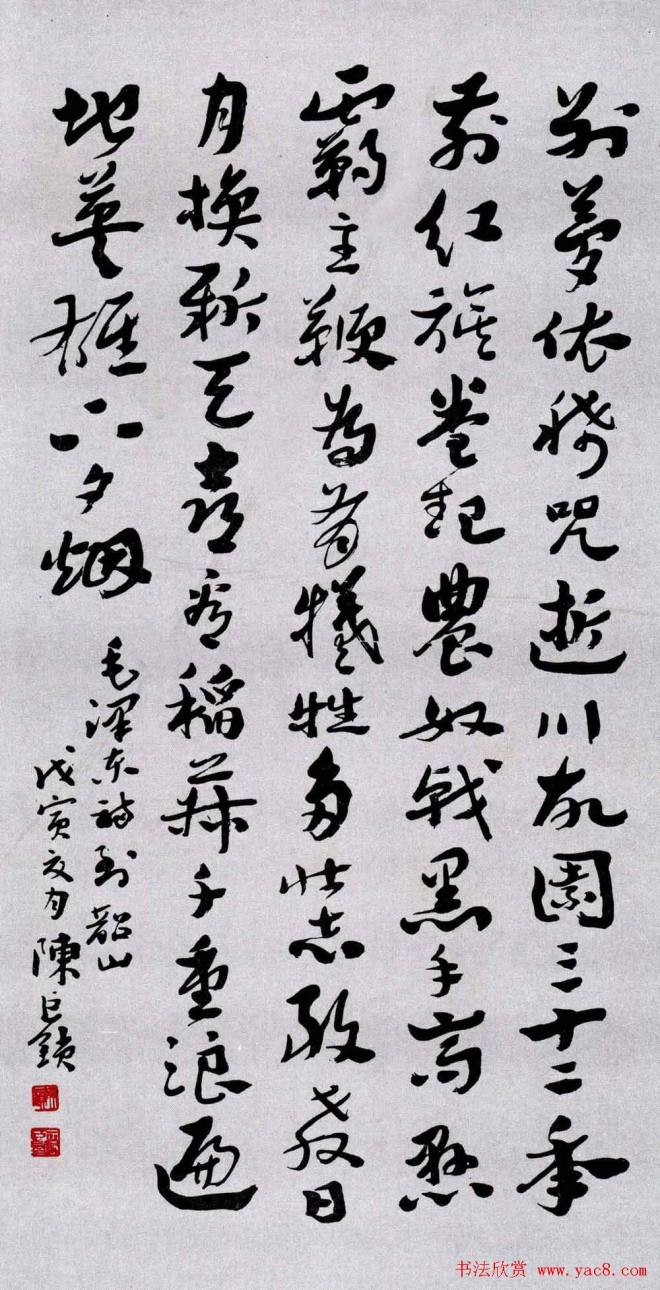 别夢依稀咒逝川故園三十二年
前红旗卷起農奴戟黑手高懸
霸主鞭为有犧牲多壮志敢教日
月換新天喜看稻菽千重浪遍
地英雄下夕烟
毛泽东诗到韶山
戊寅夏月陳巨鎖
书法欣赏 www.yac8.com